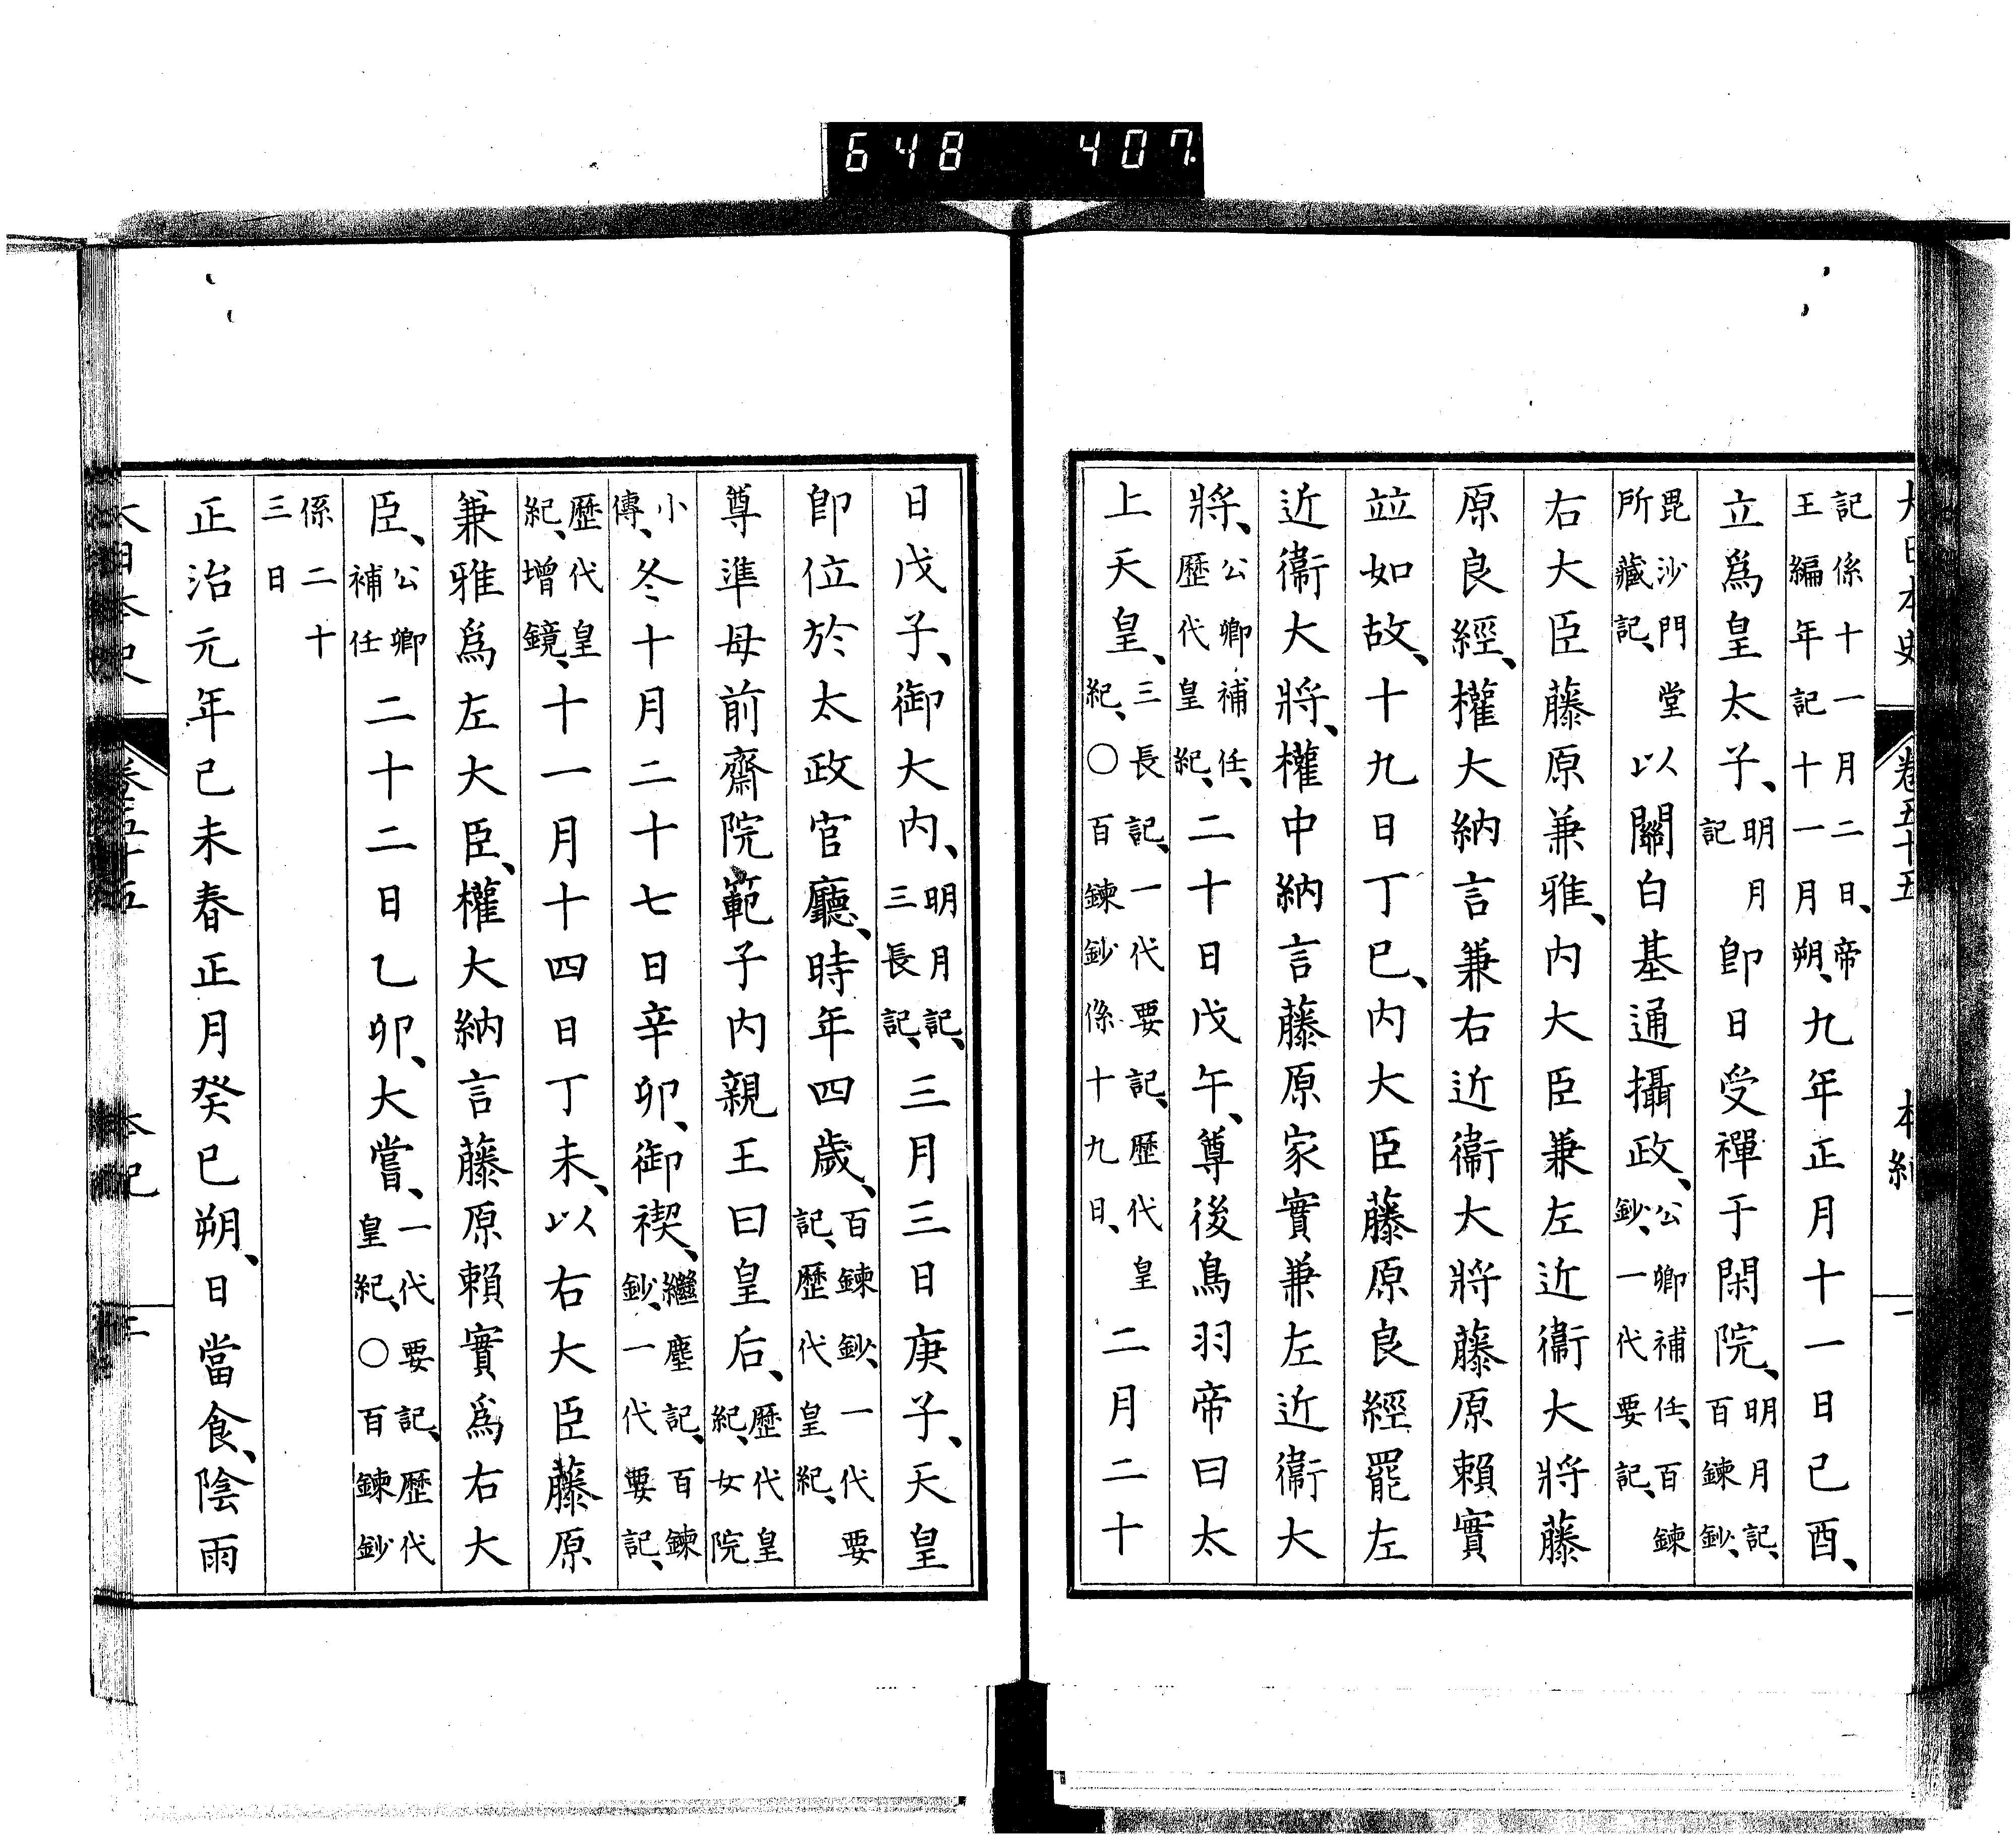 648 407
大日本史 卷五十五 本紀
記係十一月二日、帝王編年記十一月朔、九年正月十一日己酉、
立爲皇太子、明月記卽日受禪于閑院、明月記、百鍊鈔、
毘沙門堂所藏記、以關白基通攝政、公卿補任、百鍊鈔、一代要記、
右大臣藤原兼雅、内大臣兼左近衞大將藤
原良經、權大納言兼右近衞大將藤原賴實
竝如故、十九日丁巳、内大臣藤原良經罷左
近衞大將、權中納言藤原家實兼左近衞大
將、公卿補任、歷代皇紀、二十日戊午、尊後鳥羽帝曰太
上天皇、三長記、一代要記、歷代皇紀、〇百鍊鈔係十九日、二月二十
日戊子、御大内、明月記、三長記、三月三日庚子、天皇
卽位於太政官廳、時年四歲、百鍊鈔、一代要記、歷代皇紀、
尊準母前齋院範子内親王曰皇后、歷代皇紀、女院
小傳、冬十月二十七日辛卯、御禊、繼塵記、百鍊鈔、一代要記、
歷代皇紀、增鏡、十一月十四日丁未、以右大臣藤原
兼雅爲左大臣、權大納言藤原賴實爲右大
臣、公卿補任二十二日乙卯、大嘗、一代要記、歷代皇紀、〇百鍊鈔
係二十三日
正治元年己未春正月癸巳朔、日當食、陰雨
大日本史 卷五十五 本紀